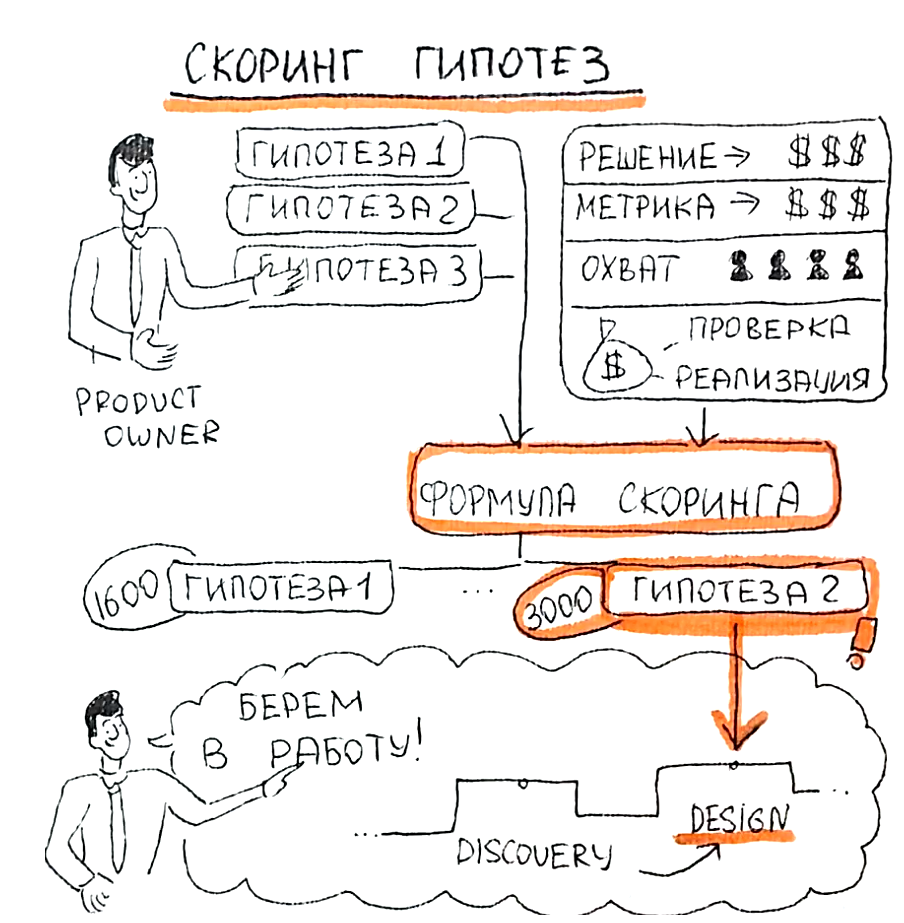 СКОРИНГ ГИПОТЕЗ
ГИПОТЕЗА 1
ГИПОТЕЗА 2
ГИПОТЕЗА 3
PRODUCT
OWNER
РЕШЕНИЕ → $ $ $
МЕТРИКА → $ $ $
ОХВАТ
$
ПРОВЕРКА
РЕАЛИЗАЦИЯ
ФОРМУЛА СКОРИНГА
1600 ГИПОТЕЗА 1
...
3000 ГИПОТЕЗА 2
!
БЕРЕМ
В РАБОТУ!
... DISCOVERY
DESIGN ...